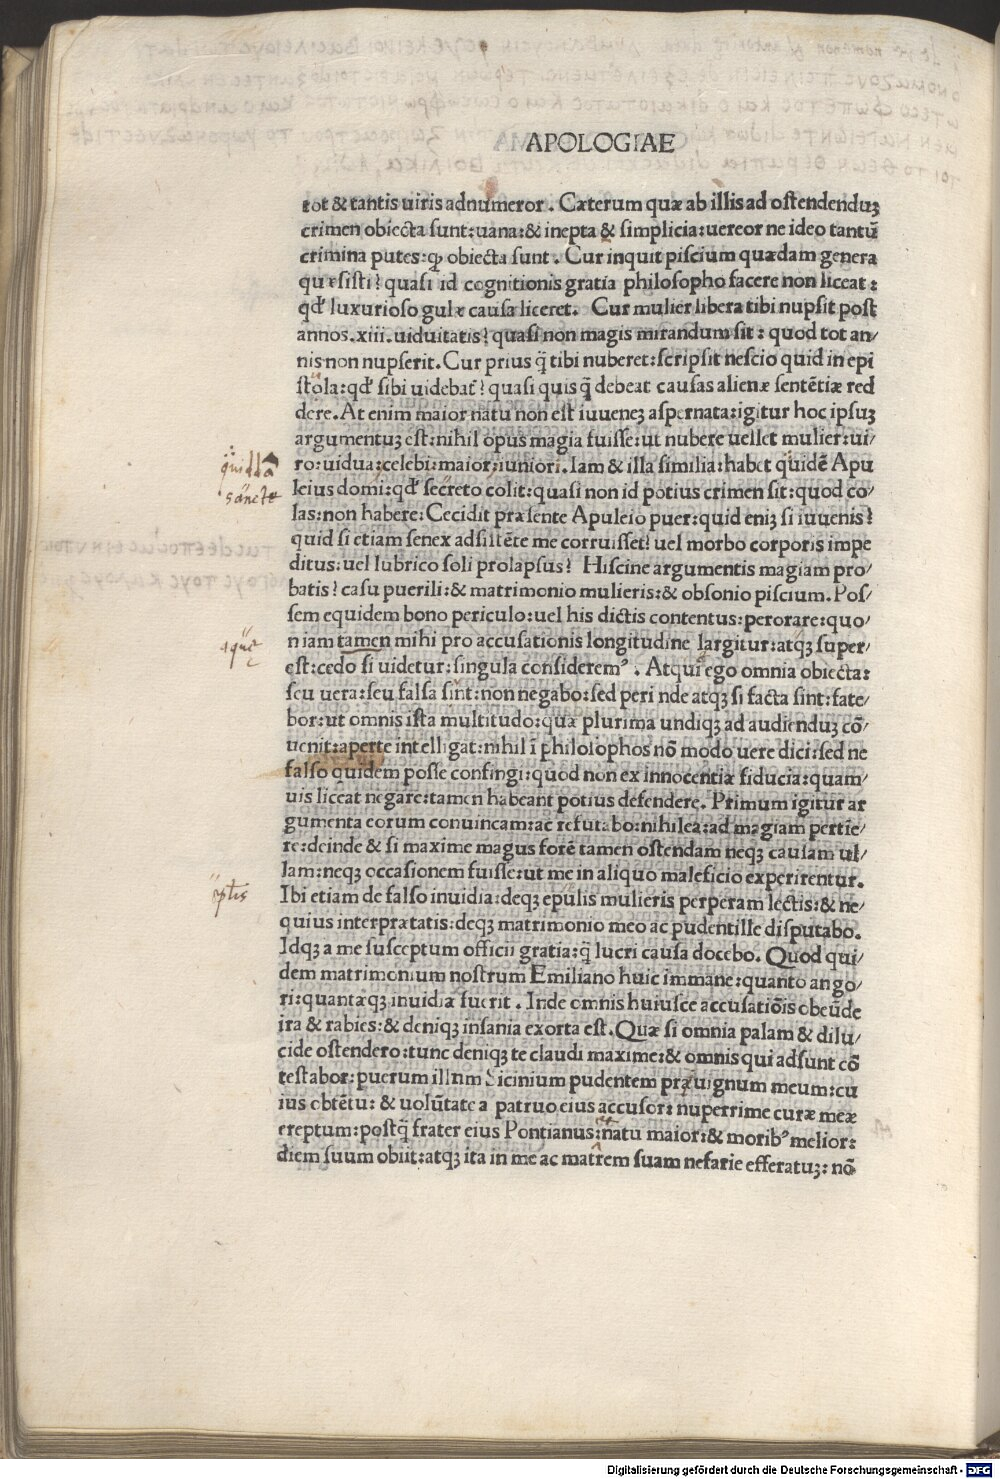 APOLOGIAE
tot & tantis uiris adnumeror. Cæterum quæ ab illis ad ostendenduꝫ
crimen obiecta sunt: uana: & inepta & simplicia: uereor ne ideo tantū
crimina putes: ꝙ obiecta sunt. Cur inquit piscium quædam genera
quæsisti? quasi id cognitionis gratia philosopho facere non liceat:
qđ luxurioso gulæ causa liceret. Cur mulier libera tibi nupsit post
annos.xiii.uiduitatis? quasi non magis mirandum sit: quod tot an/
nis non nupserit. Cur prius q̄ tibi nuberet: scripsit nescio quid in epi
stola: qđ sibi uidebat̄? quasi quis q̄ debeat causas alienæ sentētiæ red
dere. At enim maior natu non est iuueneꝫ aspernata: igitur hoc ipsuꝫ
argumentuꝫ est: nihil opus magia fuisse: ut nubere uellet mulier: ui/
ro: uidua: celebi: maior: iuniori. Iam & illa similia: habet quidē Apu
quiddā
leius domi: qđ secreto colit: quasi non id potius crimen sit: quod co/
sancte
las: non habere: Cecidit præsente Apuleio puer: quid eniꝫ si iuuenis?
quid si etiam senex adsistēte me corruisset? uel morbo corporis impe
ditus: uel lubrico soli prolapsus? Hiscine argumentis magiam pro/
batis? casu puerili: & matrimonio mulieris: & obsonio piscium. Pos/
sem equidem bono periculo: uel his dictis contentus: perorare: quo/
niam tamen mihi pro accusationis longitudine largitur: atqꝫ super/
aquę
est: cedo si uidetur: singula consideremꝰ. Atqui ego omnia obiecta:
seu uera: seu falsa sint: non negabo: sed peri nde atqꝫ si facta sint: fate/
bor: ut omnis ista multitudo: quæ plurima undiqꝫ ad audienduꝫ cō/
uenit: aperte intelligat: nihil ī philosophos nō modo uere dici: sed ne
falso quidem posse confingi: quod non ex innocentiæ fiducia: quam/
uis liceat negare: tamen habeant potius defendere. Primum igitur ar
gumenta eorum conuincam: ac refutabo: nihil ea: ad magiam pertīe/
re: deinde & si maxime magus forē tamen ostendam neqꝫ causam ul/
lam: neqꝫ occasionem fuisse: ut me in aliquo maleficio experirentur.
Ibi etiam de falso inuidia: deqꝫ epulis mulieris perperam lectis: & ne/
eptis
quius interprætatis: deqꝫ matrimonio meo ac pudentille disputabo.
Idqꝫ a me susceptum officii gratia: q̄ lucri causa docebo. Quod qui/
dem matrimonium nostrum Emiliano huic immane: quanto ango/
ri: quantæqꝫ inuidiæ fuerit. Inde omnis huiusce accusatiōis obeūde
ira & rabies: & deniqꝫ insania exorta est. Quæ si omnia palam & dilu/
cide ostendero: tunc deniqꝫ te claudi maxime: & omnis qui adsunt cō
testabor: puerum illum Sicinium pudentem præuignum meum: cu
ius obtētu: & uolūtate a patruo eius accusor: nuperrime curæ meæ
ereptum: postq̄ frater eius Pontianus: natu maior: & moribꝰ melior:
diem suum obiit: atqꝫ ita in me ac matrem suam nefarie efferatuꝫ: nō
Digitalisierung gefördert durch die Deutsche Forschungsgemeinschaft - DFG